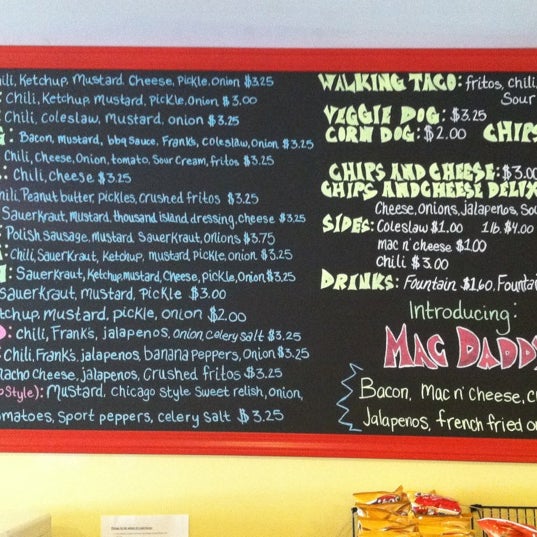 ili, Ketchup, Mustard Cheese, Pickle, Onion $3.25
: Chili, Ketchup mustard, pickle, Onion $3.00
: Chili, Coleslaw, Mustard, onion $3.25
G: Bacon, mustard, bbq sauce, Frank's, Coleslaw, Onion $3.25
Chili, Cheese, Onion, tomato, Sour Cream, fritos $3.25
: Chili, Cheese $3.25
hili, Peanut butter, pickles, crushed fritos $3.25
Sauerkraut, Mustard, thousand island dressing, cheese $3.25
: Polish Sausage, mustard, Sauerkraut, Onions $3.75
: Chili, Sauerkraut, Ketchup, mustard, pickle, onion $3.25
: Sauerkraut, Ketchup, mustard, Cheese, pickle, Onion $3.25
sauerkraut, mustard, Pickle $3.00
tchup, mustard, pickle, onion $2.00
: Chili, Frank's, jalapenos, onion, celery salt $3.25
: Chili, Frank's, jalapenos, banana peppers, Onion $3.25
nacho Cheese, jalapenos, Crushed fritos $3.25
Style): Mustard, chicago style Sweet relish, onion,
omatoes, Sport peppers, celery salt $3.25
WALKING TACO: fritos, chili,
Sour
VEGGIE DOG: $3.25
CORN DOG: $2.00 CHIPS
CHIPS AND CHEESE: $3.00
CHIPS AND CHEESE DELUX
Cheese, onions, jalapenos, So
SIDES: Coleslaw $1.00 1 lb. $4.00
mac n' cheese $1.00
Chili $3.00
DRINKS: Fountain $1.60, Fountai
Introducing:
MAC DADD
Bacon, Mac n' Cheese, c
Jalapenos, french fried on